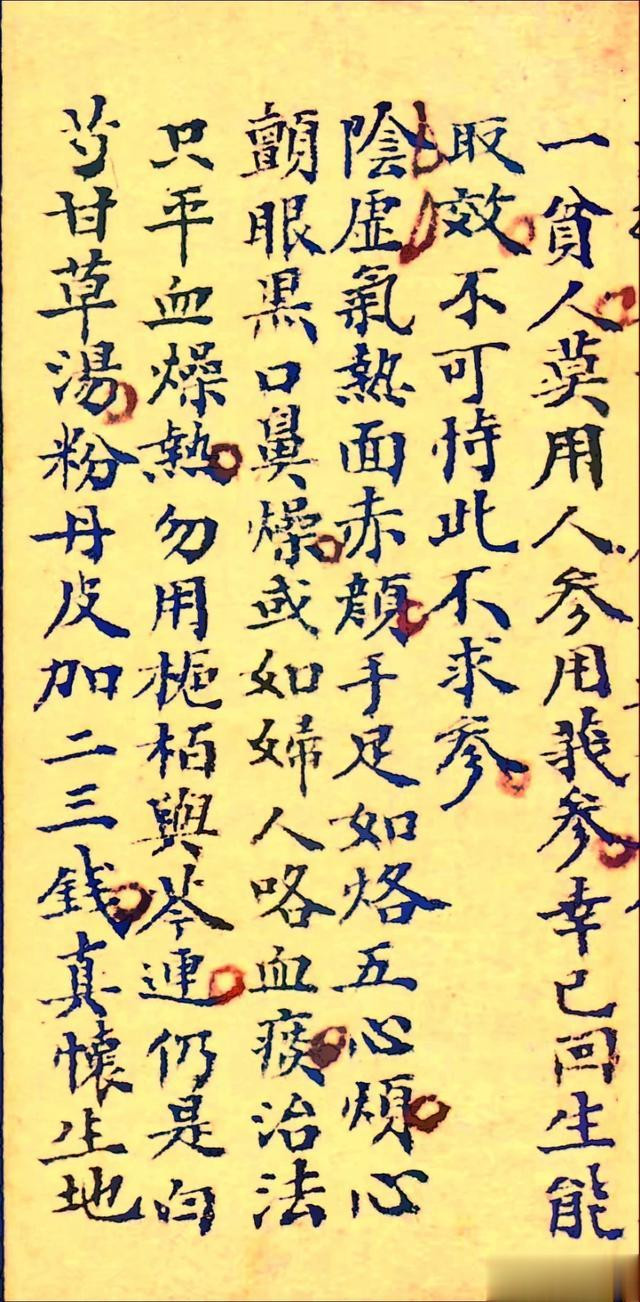 一貧人莫用人參用莪參幸已回生能
取效不可恃此不求參
陰虛氣熱面赤顏手足如烙五心煩心
顫眼黑口鼻燥或如婦人咯血痰治法
只平血燥熱勿用梔栢與芩連仍是白
芍甘草湯粉丹皮加二三錢真懷生地